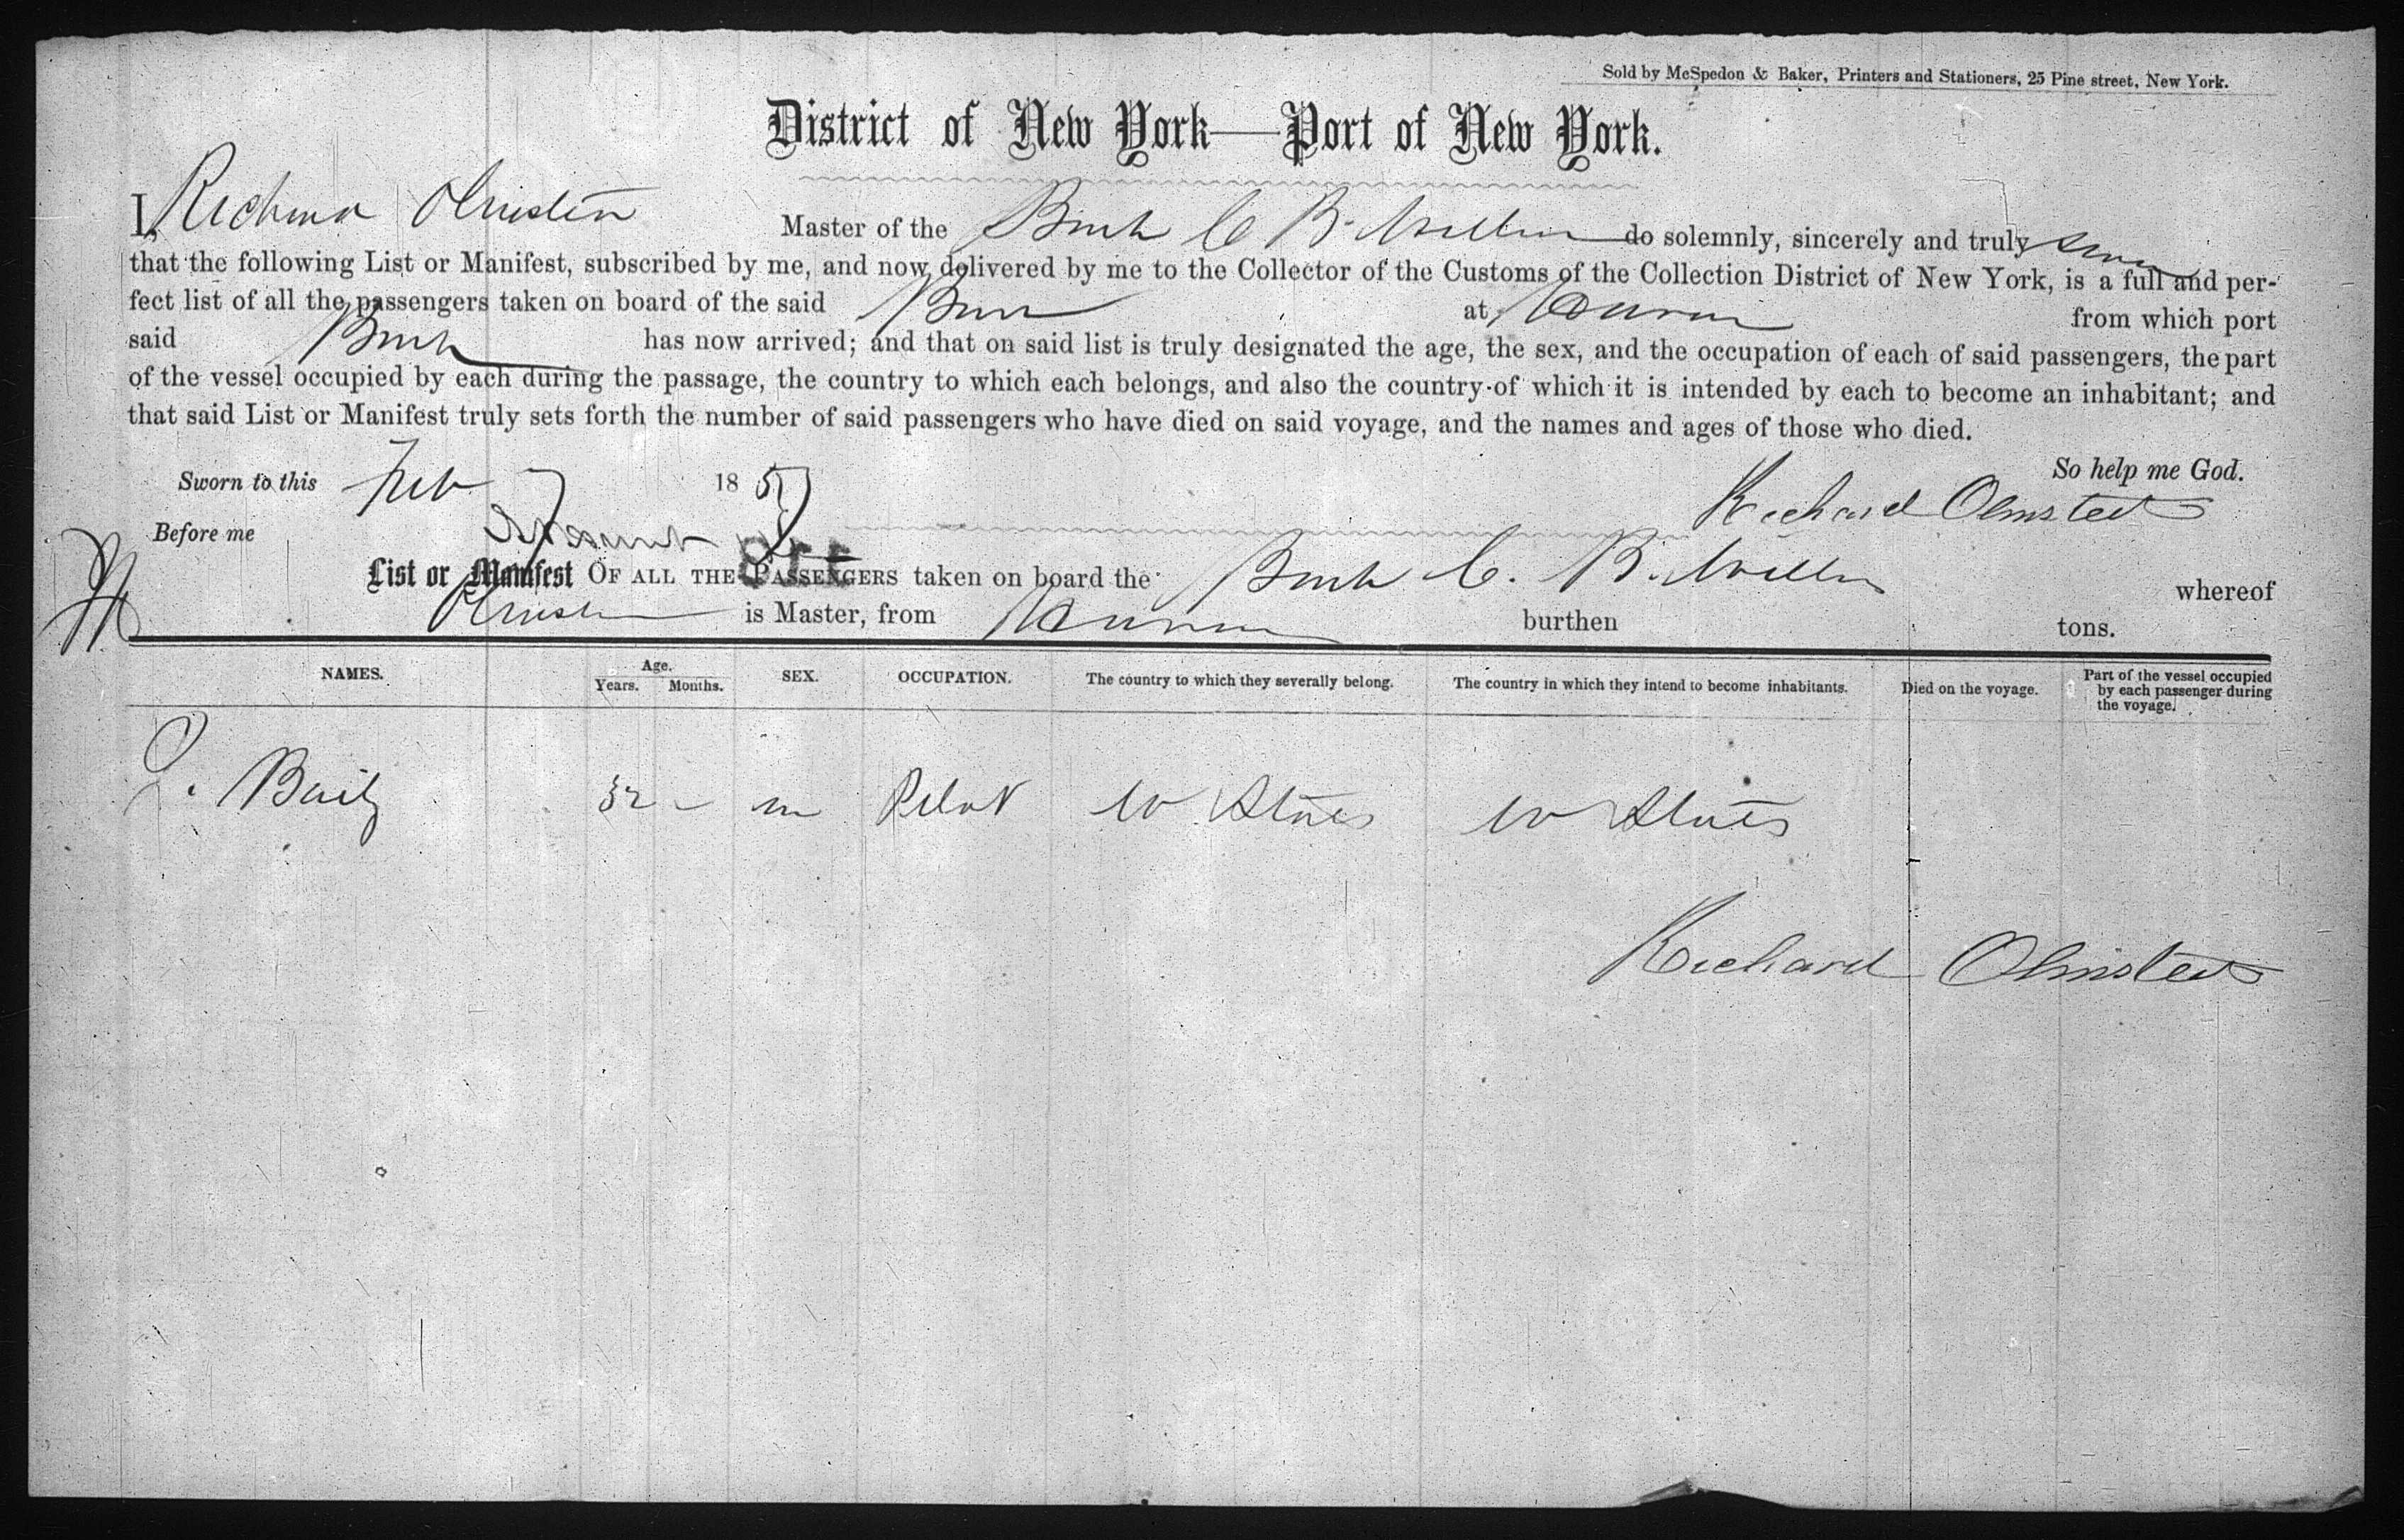 Sold by McSpedon & Baker, Printers and Stationers, 25 Pine street, New York.
District of New York—Port of New York.
I, Richard Olmsted Master of the Bark C B. do solemnly, sincerely and truly swear
that the following List or Manifest, subscribed by me, and now delivered by me to the Collector of the Customs of the Collection District of New York, is a full and per-
fect list of all the passengers taken on board of the said Bark at Havana from which port
said Bark has now arrived; and that on said list is truly designated the age, the sex, and the occupation of each of said passengers, the part
of the vessel occupied by each during the passage, the country to which each belongs, and also the country of which it is intended by each to become an inhabitant; and
that said List or Manifest truly sets forth the number of said passengers who have died on said voyage, and the names and ages of those who died.
So help me God.
Sworn to this Feb 7 185
Richard Olmsted
Before me
List or Manifest OF ALL THE PASSENGERS taken on board the Bark C. B. whereof
Olmsted is Master, from Havana burthen tons.
NAMES. Age. Years. Months. SEX. OCCUPATION. The country to which they severally belong. The country in which they intend to become inhabitants. Died on the voyage. Part of the vessel occupied by each passenger during the voyage.
J. Baily 32 - m Pilot U States U States
Richard Olmsted